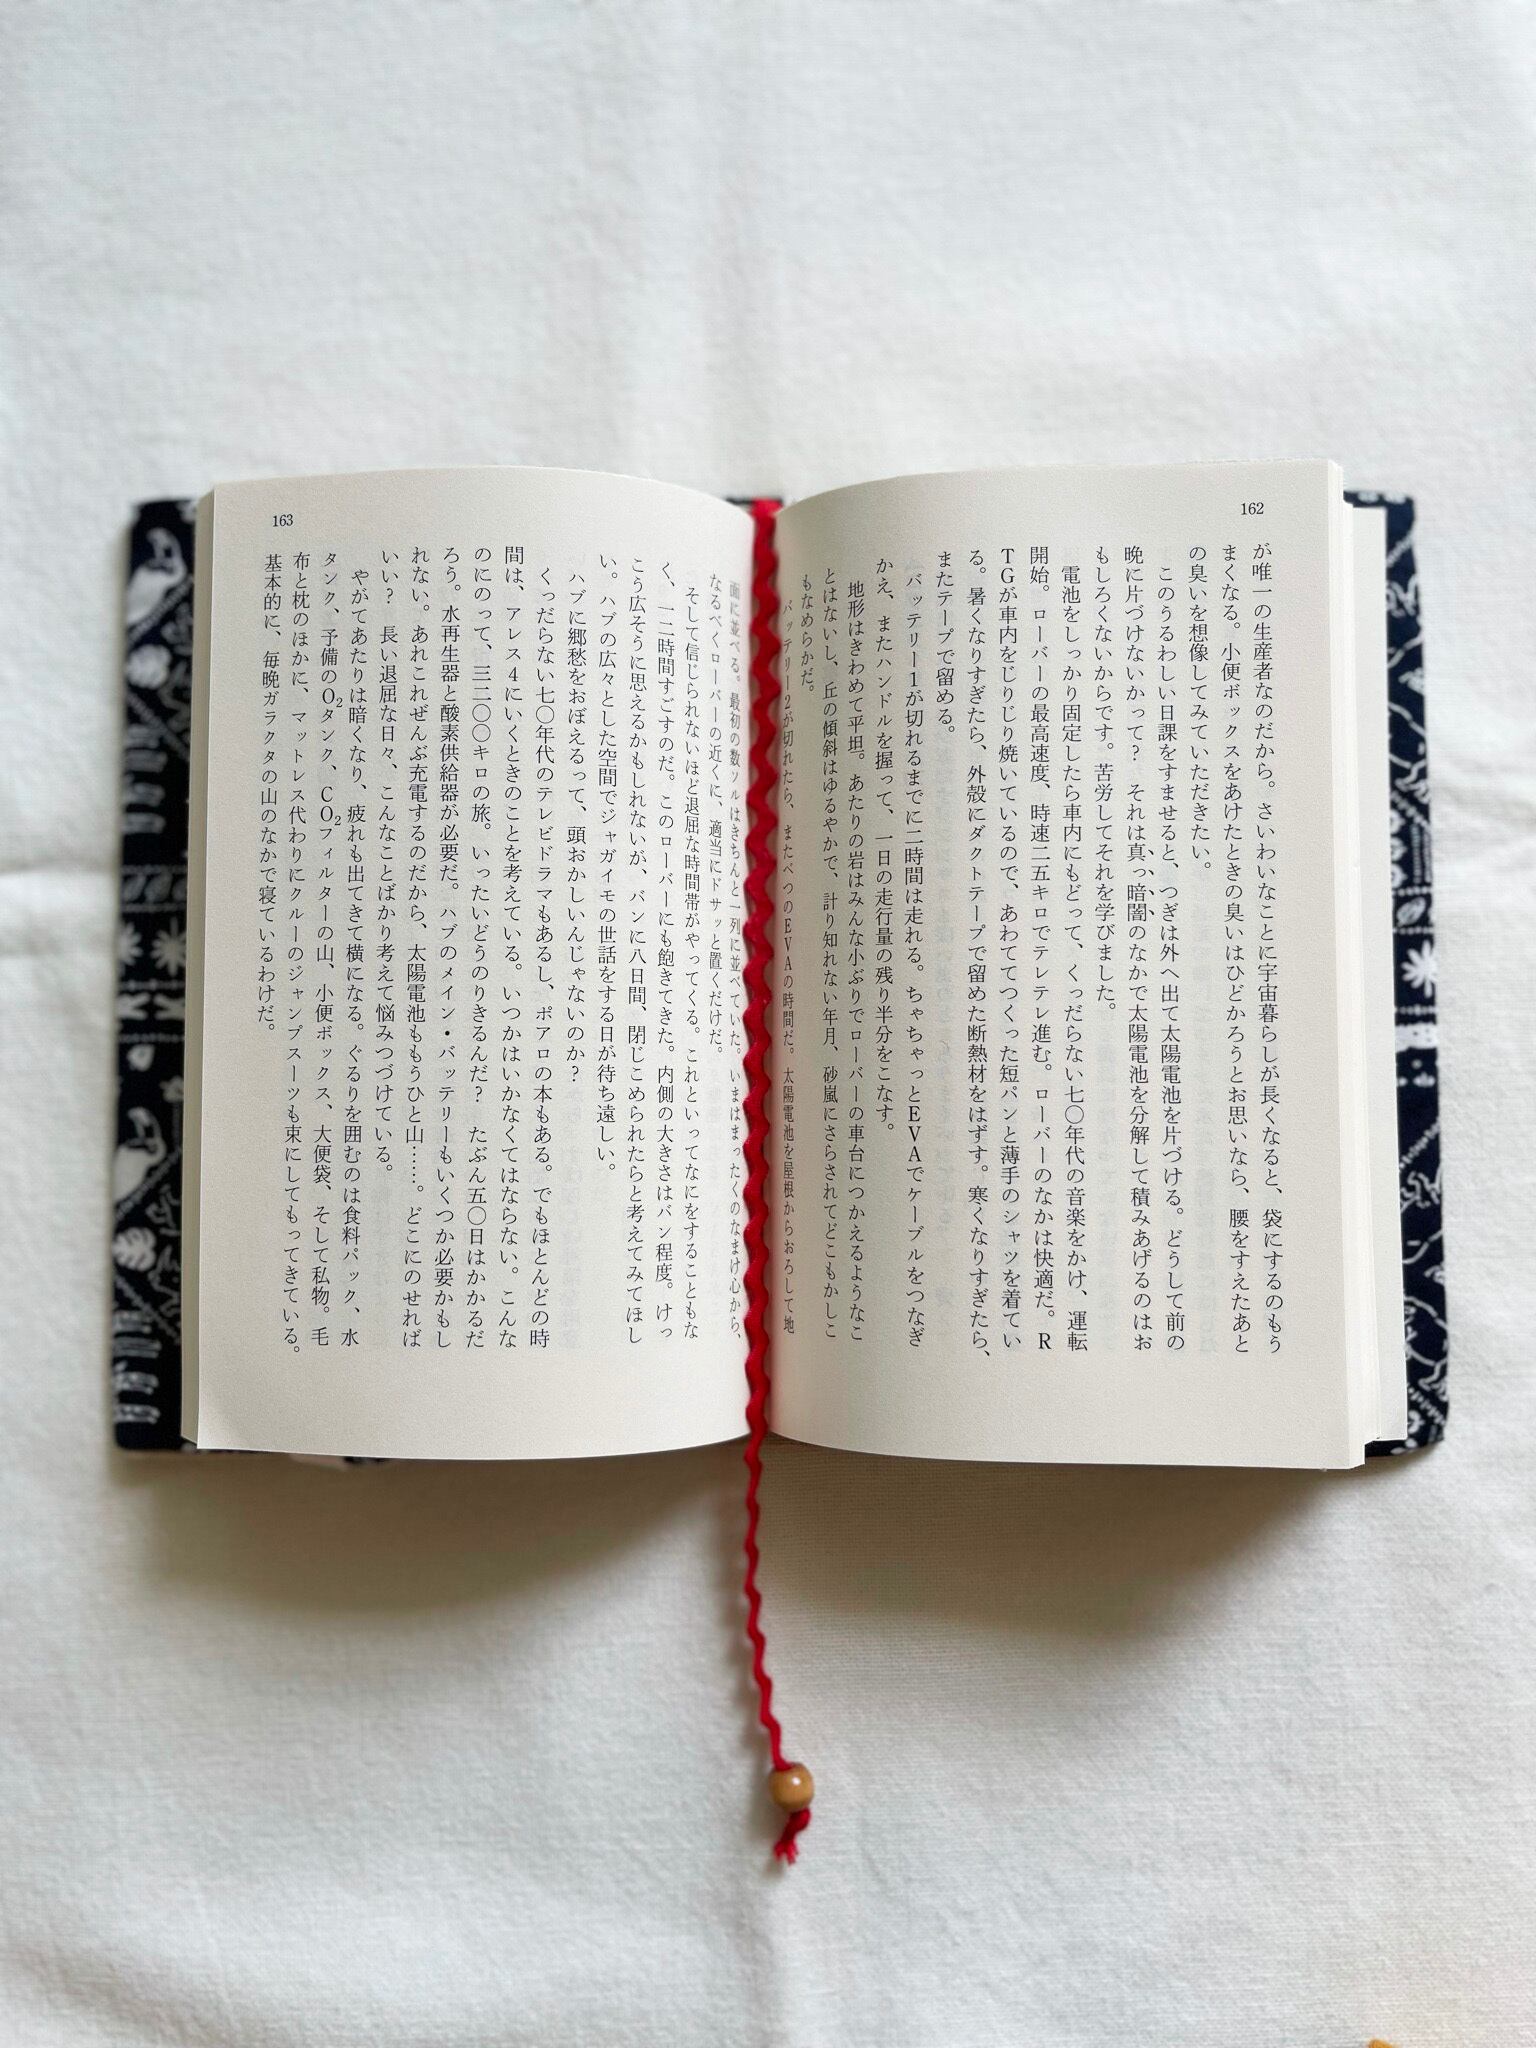 162
が唯一の生産者なのだから。さいわいなことに宇宙暮らしが長くなると、袋にするのもう
まくなる。小便ボックスをあけたときの臭いはひどかろうとお思いなら、腰をすえたあと
の臭いを想像してみていただきたい。
このうるわしい日課をすませると、つぎは外へ出て太陽電池を片づける。どうして前の
晩に片づけないかって？ それは真っ暗闇のなかで太陽電池を分解して積みあげるのはお
もしろくないからです。苦労してそれを学びました。
電池をしっかり固定したら車内にもどって、くっだらない七〇年代の音楽をかけ、運転
開始。ローバーの最高速度、時速二五キロでテレテレ進む。ローバーのなかは快適だ。R
TGが車内をじりじり焼いているので、あわててつくった短パンと薄手のシャツを着てい
る。暑くなりすぎたら、外殻にダクトテープで留めた断熱材をはずす。寒くなりすぎたら、
またテープで留める。
バッテリー1が切れるまでに二時間は走れる。ちゃちゃっとEVAでケーブルをつなぎ
かえ、またハンドルを握って、一日の走行量の残り半分をこなす。
地形はきわめて平坦。あたりの岩はみんな小ぶりでローバーの車台につかえるようなこ
とはないし、丘の傾斜はゆるやかで、計り知れない年月、砂嵐にさらされてどこもかしこ
もなめらかだ。
バッテリー2が切れたら、またべつのEVAの時間だ。太陽電池を屋根からおろして地
面に並べる。最初の数ソルはきちんと一列に並べていた。いまはまったくのなまけ心から、
なるべくローバーの近くに、適当にドサッと置くだけだ。
そして信じられないほど退屈な時間帯がやってくる。これといってなにをすることもな
く、一二時間すごすのだ。このローバーにも飽きてきた。内側の大きさはバン程度。けっ
こう広そうに思えるかもしれないが、バンに八日間、閉じこめられたらと考えてみてほし
い。ハブの広々とした空間でジャガイモの世話をする日が待ち遠しい。
ハブに郷愁をおぼえるって、頭おかしいんじゃないのか？
くっだらない七〇年代のテレビドラマもあるし、ポアロの本もある。でもほとんどの時
間は、アレス4にいくときのことを考えている。いつかはいかなくてはならない。こんな
のにのって、三二〇〇キロの旅。いったいどうのりきるんだ？ たぶん五〇日はかかるだ
ろう。水再生器と酸素供給器が必要だ。ハブのメイン・バッテリーもいくつか必要かもし
れない。あれこれぜんぶ充電するのだから、太陽電池ももうひと山……。どこにのせれば
いい？ 長い退屈な日々、こんなことばかり考えて悩みつづけている。
やがてあたりは暗くなり、疲れも出てきて横になる。ぐるりを囲むのは食料パック、水
タンク、予備のO₂タンク、CO₂フィルターの山、小便ボックス、大便袋、そして私物。毛
布と枕のほかに、マットレス代わりにクルーのジャンプスーツも束にしてもってきている。
基本的に、毎晩ガラクタの山のなかで寝ているわけだ。
163